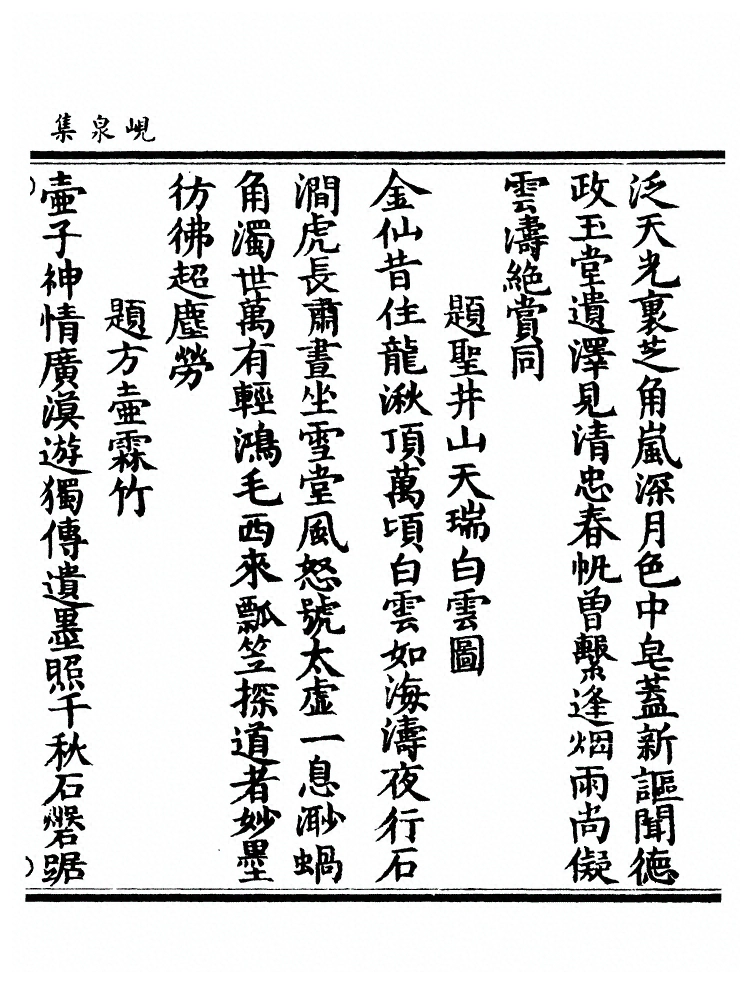 峴泉集
泛天光裏芝角嵐深月色中皂蓋新謳聞德
政玉堂遺澤見清忠春帆曾繫逢烟雨尚儗
雲濤絶賞同
題聖井山天瑞白雲圖
金仙昔住龍湫頂萬頃白雲如海濤夜行石
澗虎長肅晝坐雪堂風怒號太虛一息渺蝸
角濁世萬有輕鴻毛西來瓢笠探道者妙墨
彷彿超塵勞
題方壷霖竹
壷子神情廣漠遊獨傳遺墨照千秋石磐踞